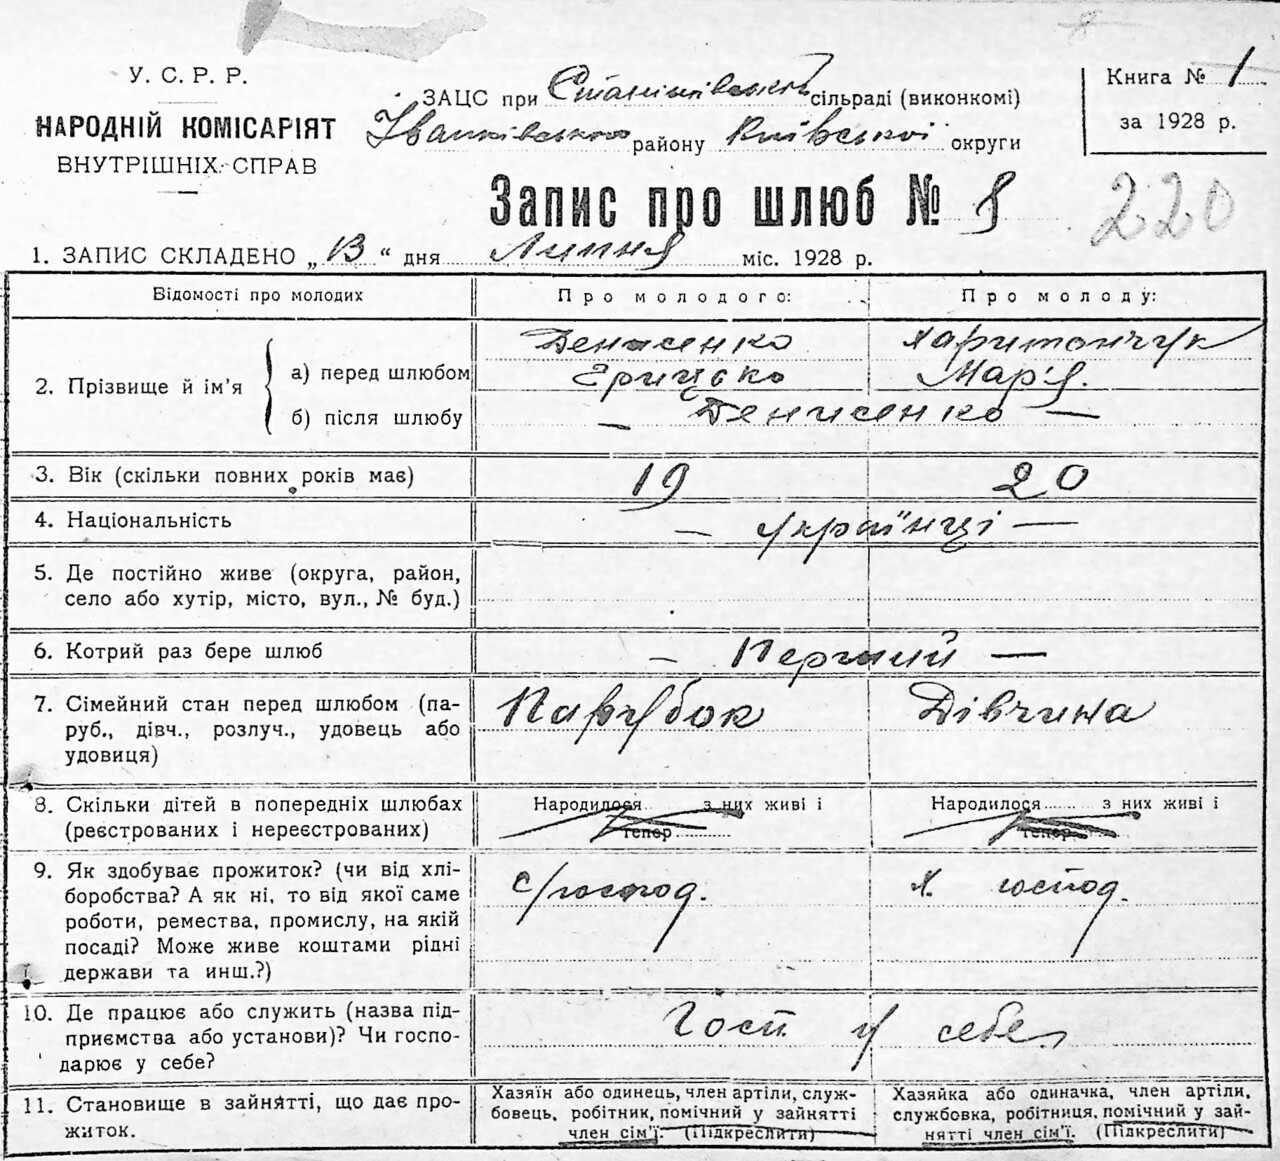 У. С. Р. Р.
НАРОДНІЙ КОМІСАРІЯТ
ВНУТРІШНІХ СПРАВ
ЗАЦС при сільраді (виконкомі)
Іванківського району Київської округи
Книга № 1
за 1928 р.
Запис про шлюб № 8
220
1. ЗАПИС СКЛАДЕНО „13“ дня Липня міс. 1928 р.
Відомості про молодих
Про молодого:
Про молоду:
2. Прізвище й ім’я
а) перед шлюбом
Денисенко
Грицько
Харитончук
Мар'я.
б) після шлюбу
— Денисенко —
3. Вік (скільки повних років має)
19
20
4. Національність
— українці —
5. Де постійно живе (округа, район,
село або хутір, місто, вул., № буд.)
6. Котрий раз бере шлюб
— Перший —
7. Сімейний стан перед шлюбом (па-
руб., дівч., розлуч., удовець або
удовиця)
Парубок
Дівчина
8. Скільки дітей в попередніх шлюбах
(реєстрованих і нереєстрованих)
Народилося з них живі і
тепер
Народилося з них живі і
тепер
9. Як здобуває прожиток? (чи від хлі-
боробства? А як ні, то від якої саме
роботи, ремества, промислу, на якій
посаді? Може живе коштами рідні
держави та инш.?)
с/господ.
х. господ.
10. Де працює або служить (назва під-
приємства або установи)? Чи госпо-
дарює у себе?
Госп у себе
11. Становище в зайнятті, що дає про-
житок.
Хазяїн або одинець, член артіли, служ-
бовець, робітник, помічний у зайнятті
член сім’ї. (Підкреслити)
Хазяйка або одиначка, член артіли,
службовка, робітниця, помічний у зай-
нятті член сім’ї. (Підкреслити)